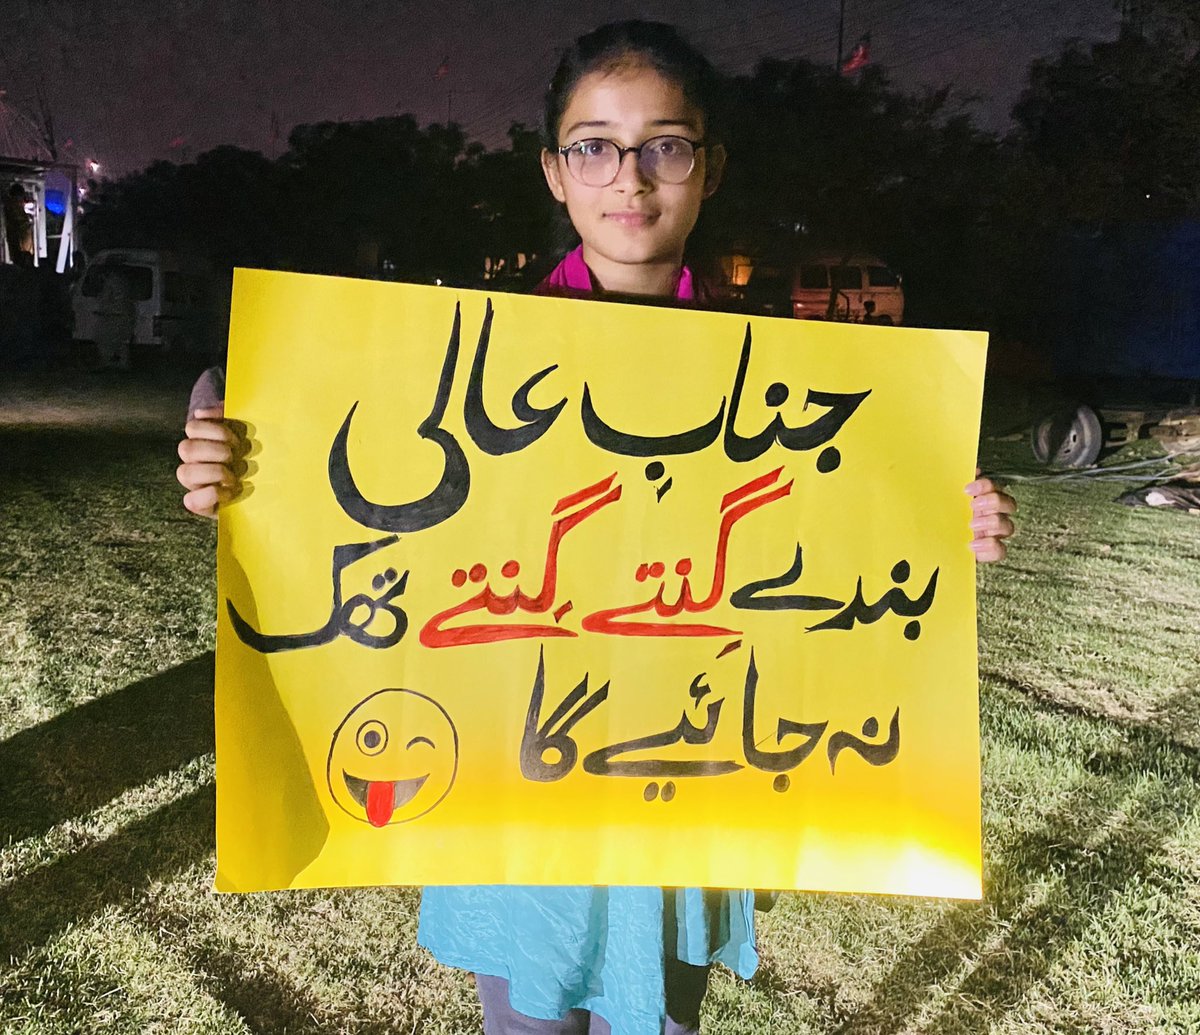 جنابِ عالی
بندے گِنتے گِنتے تھک
نہ جائیے گا